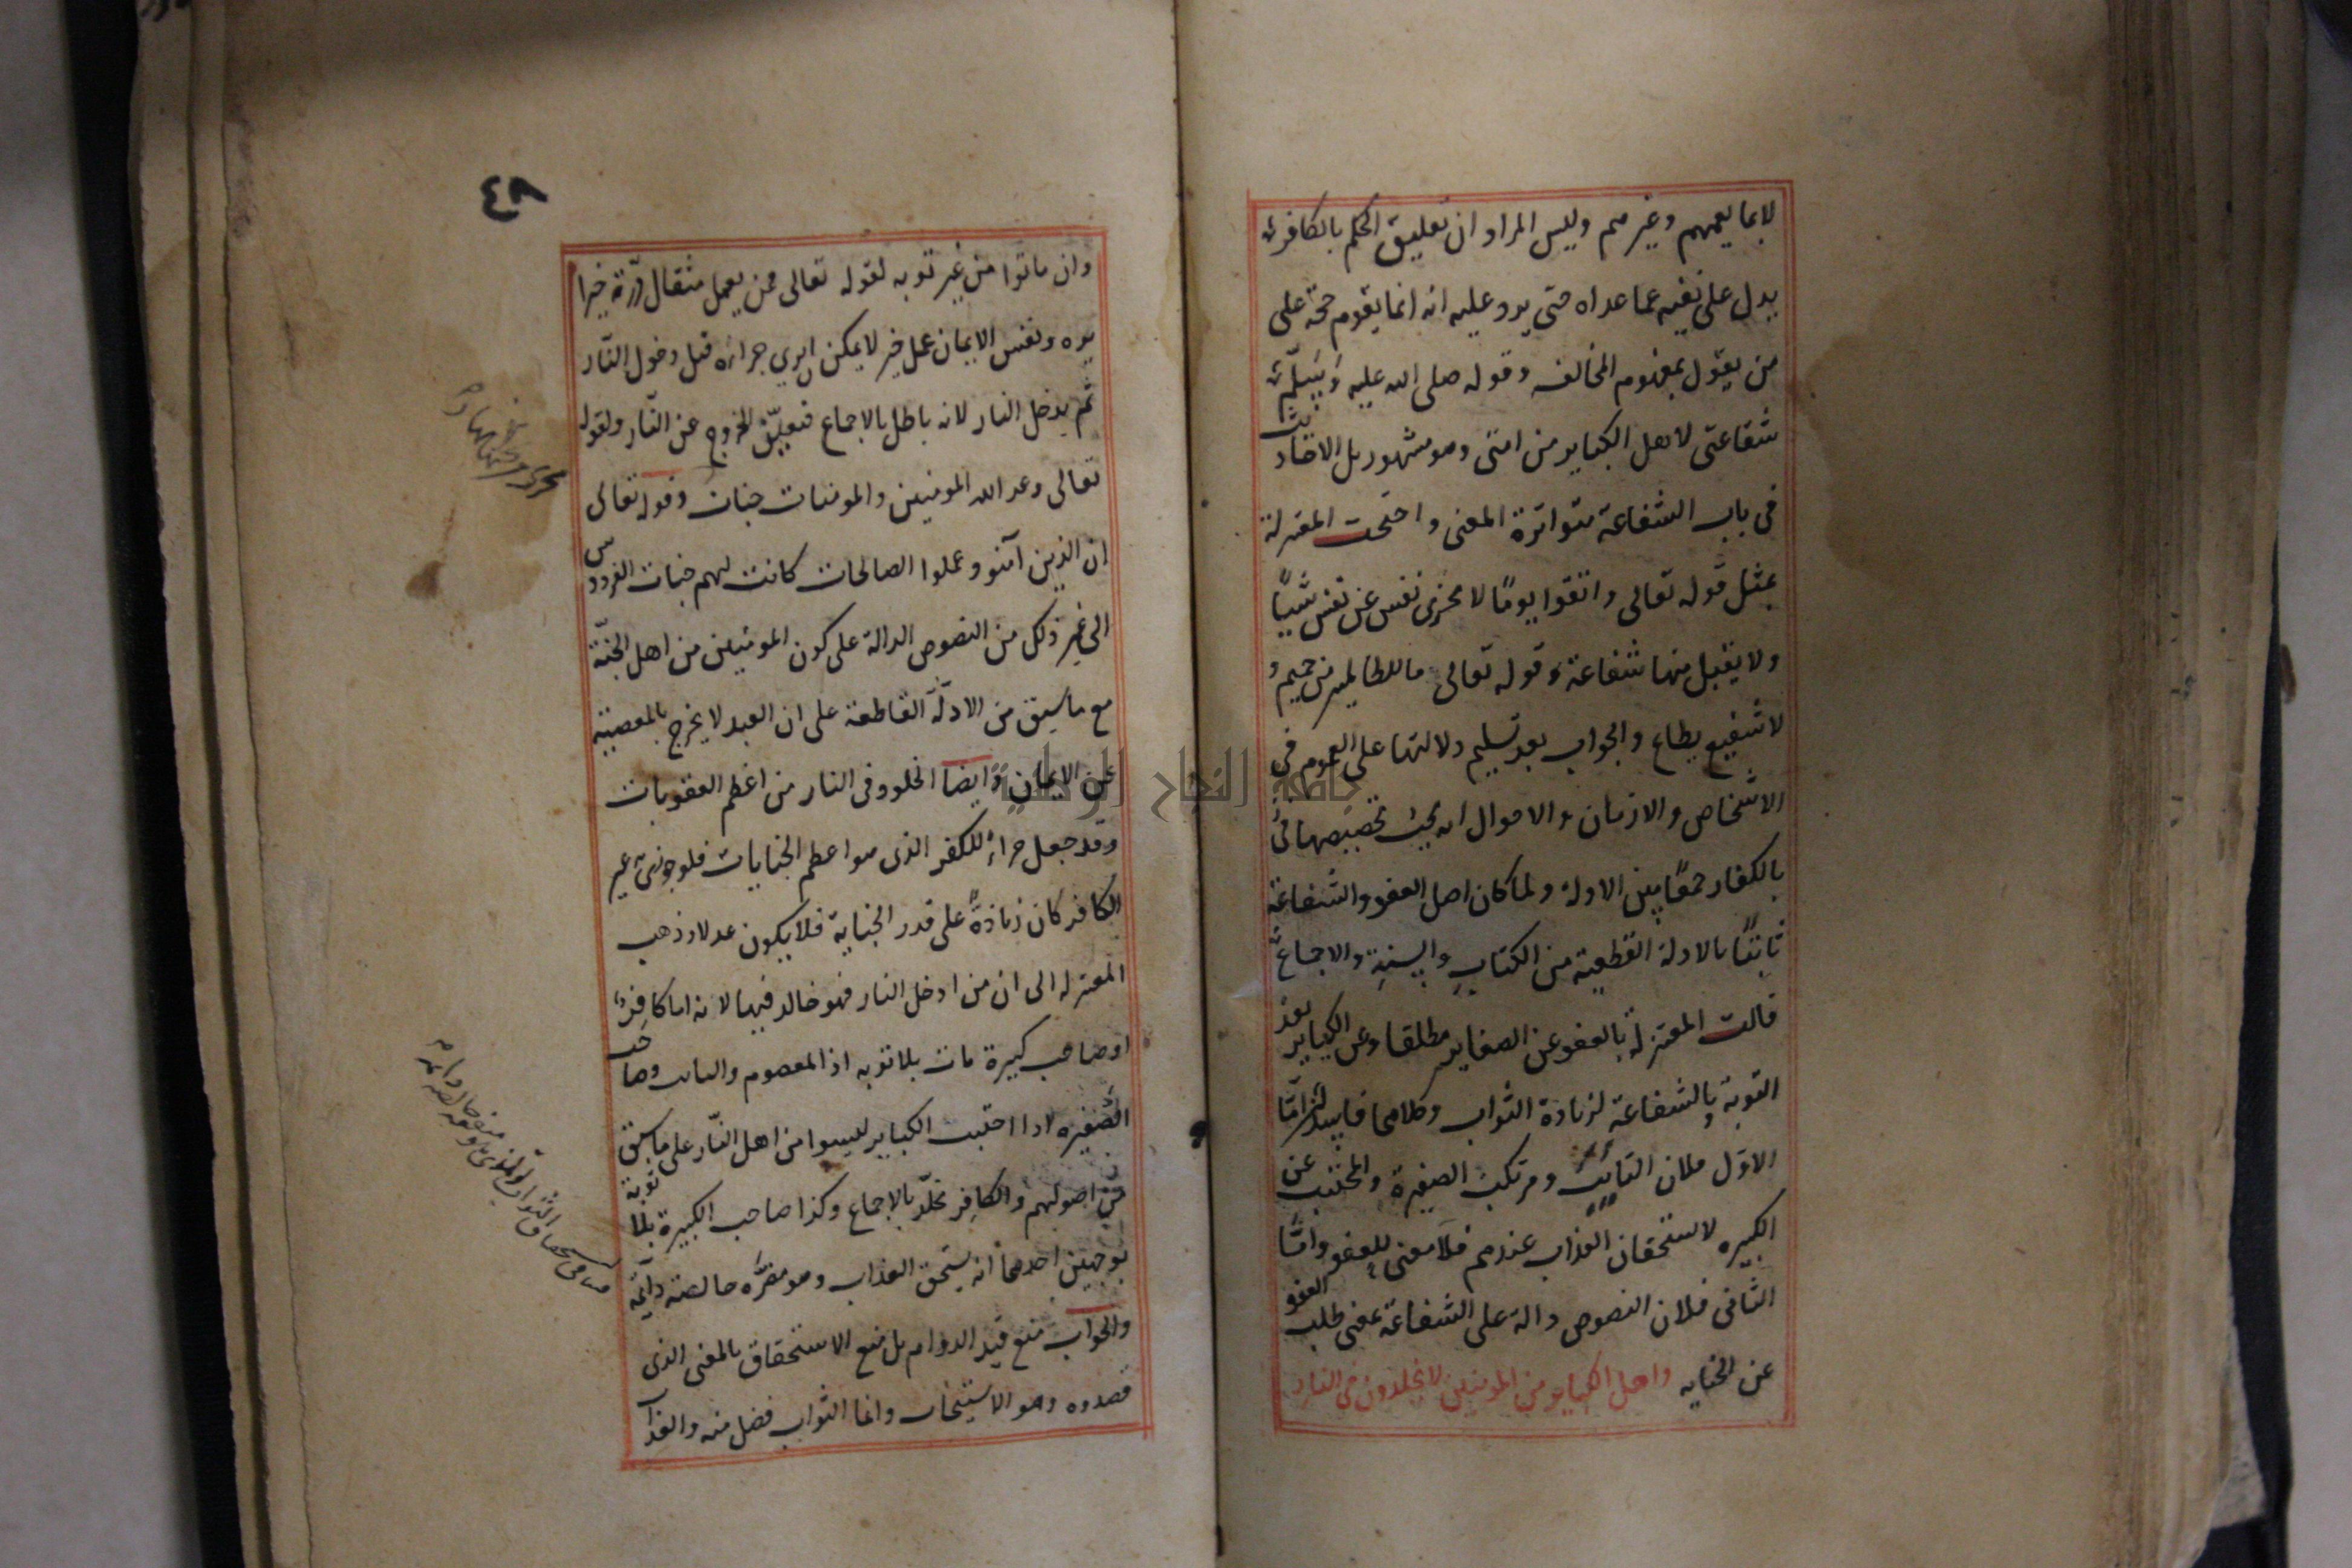 لا بما يعمهم وغيرهم وليس المراد ان تعليق الحكم بالكافر
يدل على نفيه عما عداه حتى يرد عليه انه انما يقوم حجة على
من يقول بمفهوم المخالفه وقوله صلى الله عليه وسلم
شفاعتى لاهل الكباير من امتى وهو مشهور بل الاحاديث
فى باب الشفاعة متواترة المعنى واحتجت المعتزلة
بمثل قوله تعالى واتقوا يومًا لا تجزى نفس عن نفس شيئًا
ولا يقبل منها شفاعة وقوله تعالى ما للظالمين من حميم و
لا شفيع يطاع والجواب بعد تسليم دلالتها على العموم فى
الاشخاص والازمان والاحوال انه يجب تخصيصها
بالكفار جمعًا بين الادلة ولما كان اصل العفو والشفاعة
ثابتًا بالادلة القطعية من الكتاب والسنة والاجماع
قالت المعتزلة بالعفو عن الصغاير مطلقا وعن الكباير بعد
التوبة وبالشفاعة لزيادة الثواب وكلاهما فاسد امّا
الاول فلان التايب ومرتكب الصغيرة والمجتنب عن
الكبيره لا يستحقان العذاب عندهم فلا معنى للعفو وامّا
الثانى فلان النصوص دالة على الشفاعة بمعنى طلب العفو
عن الجنايه واهل الكباير من المومنين لا يخلدون فى النار
٤٨
وان ماتوا من غير توبه لقوله تعالى فمن يعمل مثقال ذرّة خيرا
يره ونفس الايمان عمل خير لا يمكن ان يرى جزاءه قبل دخول النّار
ثم يدخل النار لانه باطل بالاجماع فتعيّن الخروج عن النّار ولقوله
تعالى وعد الله المومنين والمومنات جنات وقوله تعالى
ان الذين آمنو وعملوا الصالحات كانت لهم جنات الفردوس
الى غير ذلك من النصوص الدالة على كون المومنين من اهل الجنّة
مع ما سبق من الادلّة القاطعة على ان العبد لا يخرج بالمعصيته
عن الايمان وايضا الخلود فى النار من اعظم العقوبات
وقد جعل جزاءً للكفر الذى هو اعظم الجنايات فلو جوزى غير
الكافر كان زيادةً على قدر الجناية فلا يكون عدلا وذهب
المعتزله الى ان من ادخل النار فهو خالد فيها لانه اما كافر
او صاحب كبيرة مات بلا توبه اذ المعصوم والتايب وصاحب
الصّغيره اذا اجتنب الكباير ليسوا من اهل النّار على ما سبق
من اصولهم والكافر مخلّد بالاجماع وكذا صاحب الكبيرة بلا توبة
بوجهين احدهما انه يستحق العذاب وهو مضرّه خالصه دائمة
والجواب منع قيد الدوام بل منع الاستحقاق بالمعنى الذى
قصدوه وهو الاستيجاب وانما الثواب فضل منه والعذاب
جامعة النجاح الوطنية